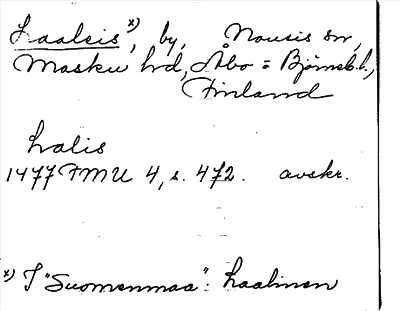 Laaleis x), by, Nousis sn,
Masku hd, Åbo = Björneb. l.,
Finland
Lalis
1477 FMU 4, s. 472. avskr.
x) I "Suomenmaa": Laalinen